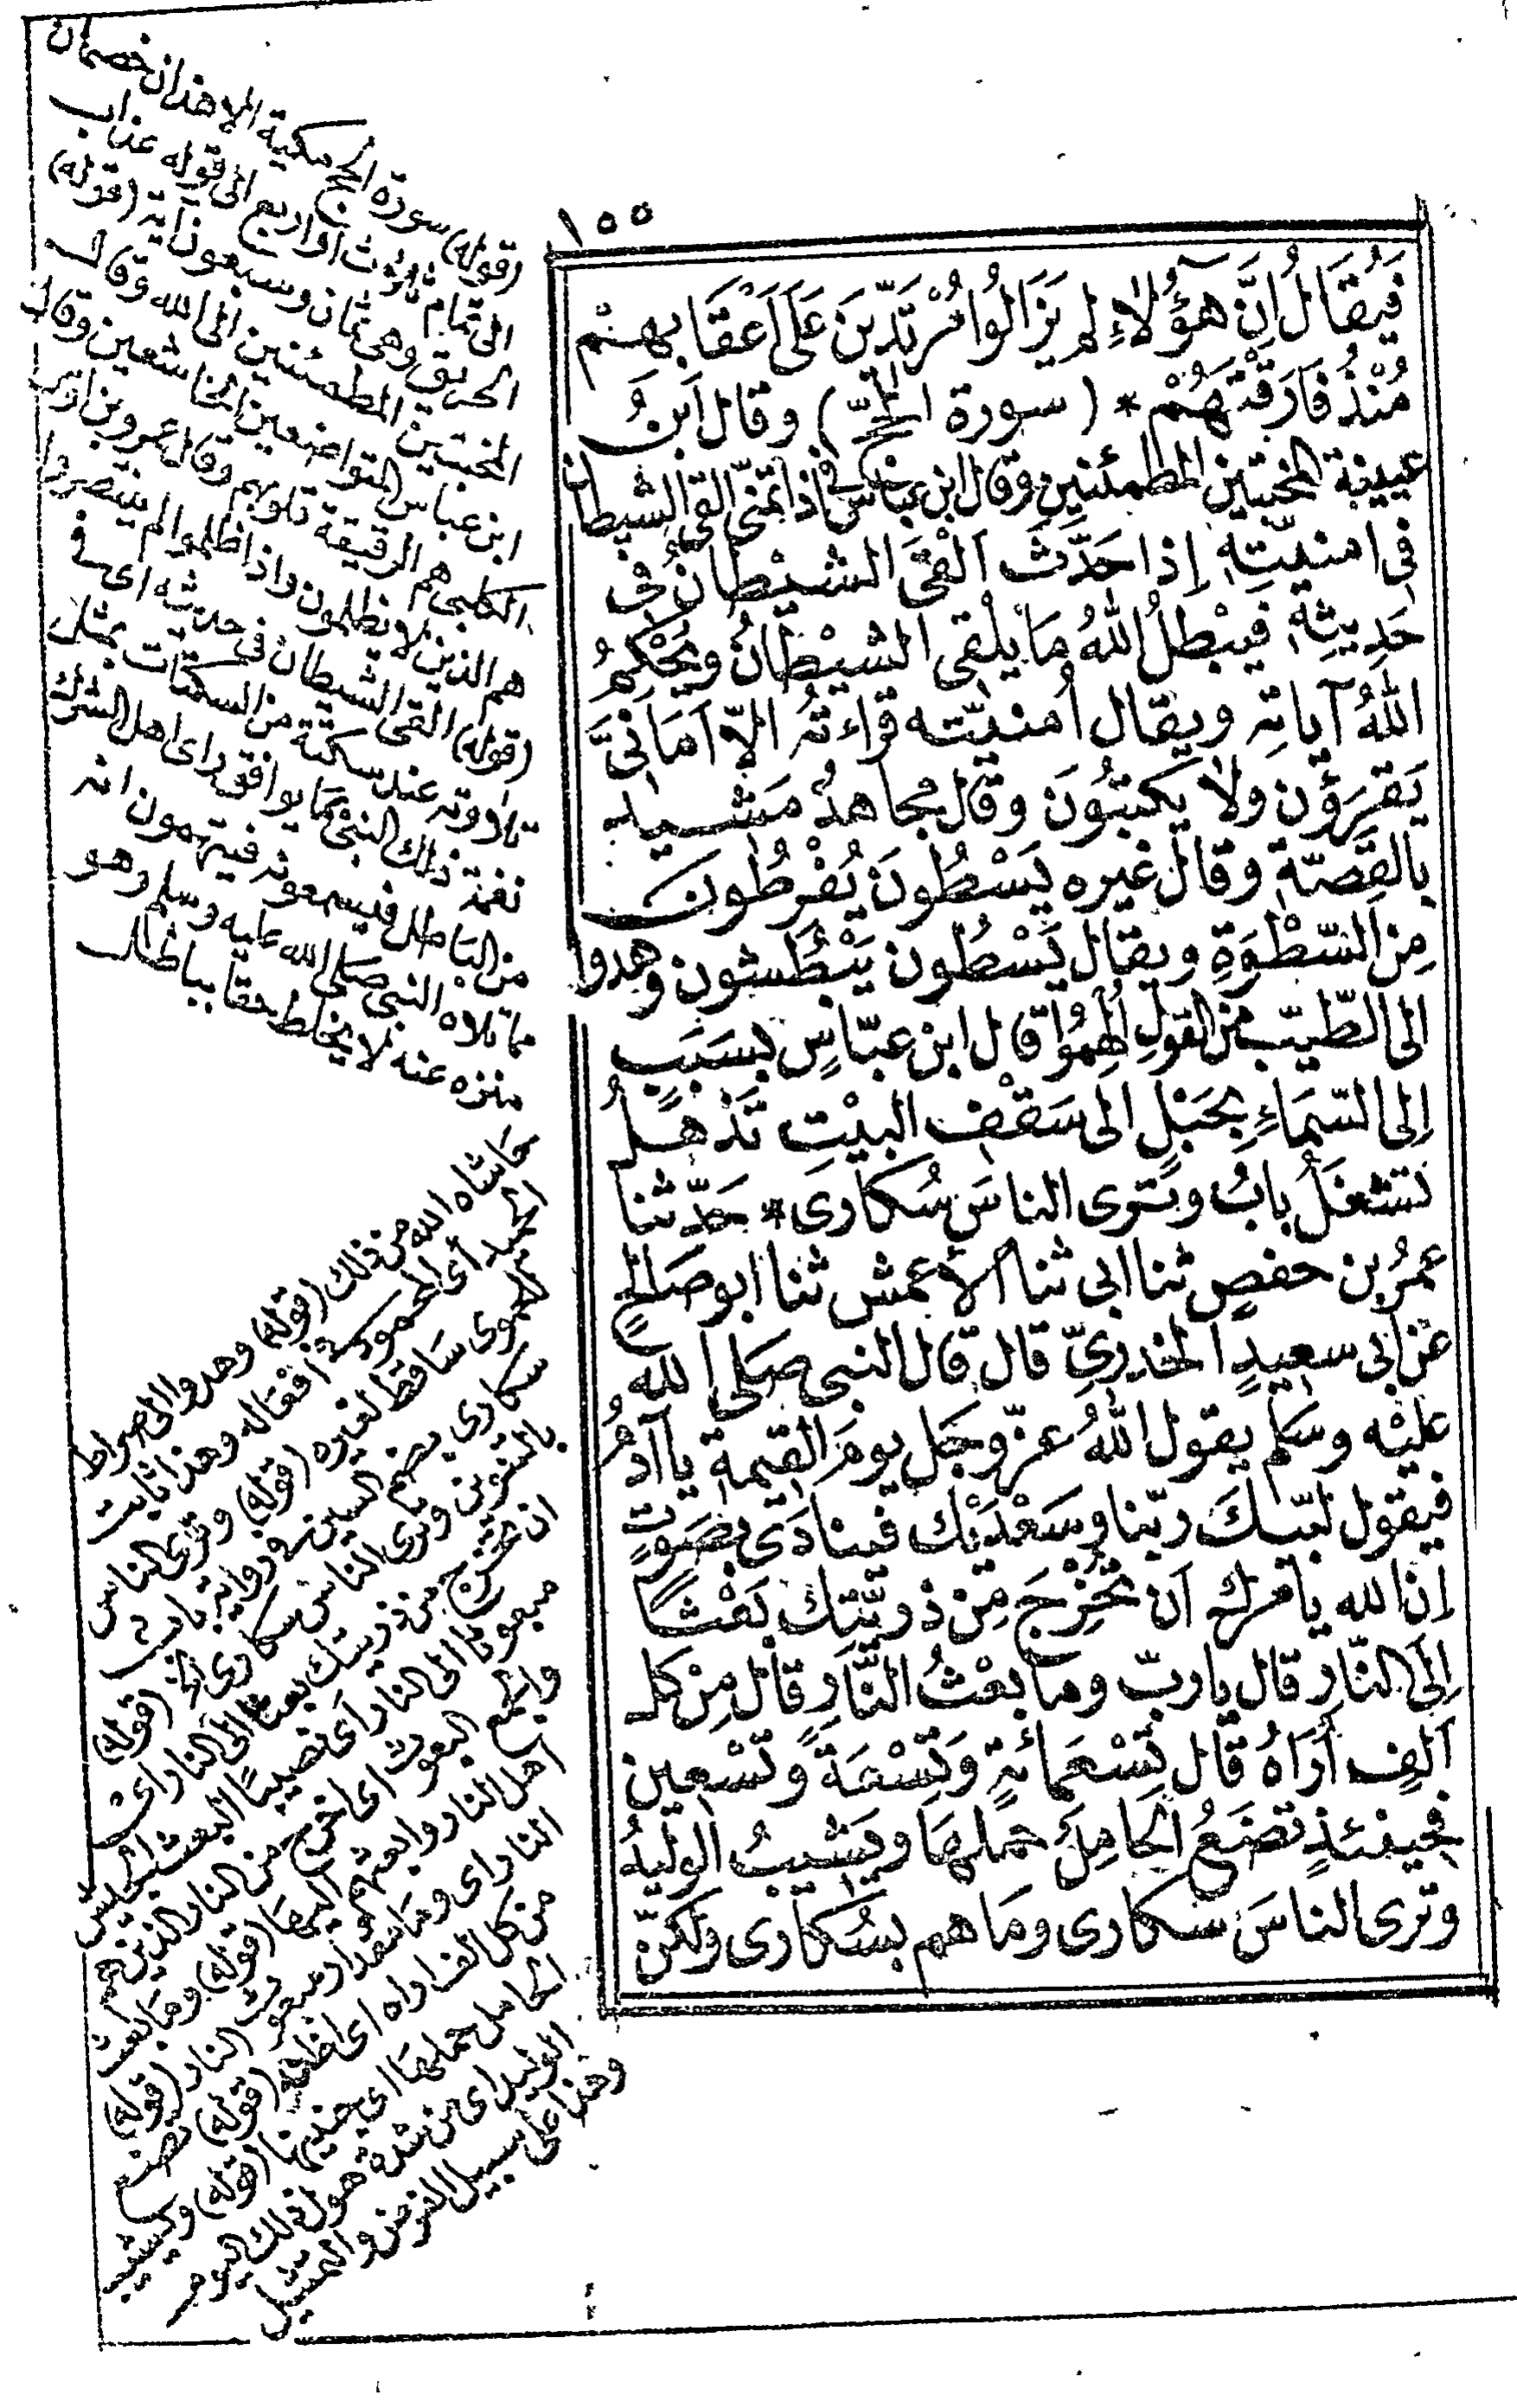 ١٥٥
فَيُقَالُ اِنَّ هؤُلاءِ لم يَزَالُوا مُرْتَدِّينَ عَلَى اَعْقَابهِمْ
مُنْذُ فَارَقْتَهُمْ * ( سورة الحجّ ) وقال ابنُ
عيينة المخبتين المطمئنين وقال ابن عباس في اذا تمنّى القى الشيطان
فى امنيّتِه إذا حَدَّثَ اَلْقَى الشيْطانُ فى
حَدِيثِه فيُبْطلُ اللهُ مَا يلْقى الشيْطَانُ ويُحْكِمُ
اللهُ آياتِه ويقال اُمنيّته قراءتُه الاّ اَمَانىَّ
يَقرَؤن ولا يَكتبُونَ وقال مجاهدٌ مَشيد
بالقَصّة وقال غيره يَسْطُونَ يَفْرُطُون
مِن السّطْوَةِ ويقال يَسْطُون يَبْطُشون وهُدوا
الى الطّيّب من القول اُلْهِمُوا قال ابن عبّاسٍ بسَبَبٍ
اِلى السّمَاءِ بِحَبْلٍ الى سَقْف البيْتِ تَذْهلُ
تشْغَلُ بابُ وترى الناسَ سُكارى * حَدّثنا
عمرُ بن حفصٍ ثنا ابى ثنا الأعمش ثنا ابو صَالحٍ
عن ابى سعيدٍ الخدرىّ قال قال النبى صَلى الله
عليْه وسَلم يقول اللهُ عزّ وجَل يومَ القيمة يا آدَمُ
فيقول لبّيكَ ربّنا وسَعْدَيْك فينادَى بصَوتٍ
اِن الله يأمرك اَن تُخْرِجَ مِن ذرّيّتِك بَعْثًا
اِلى النّارِ قال يا ربّ وما بعْثُ النَّارِ قال مِنْ كل
اَلفٍ اُرَاهُ قال تِسْعَمائةٍ وَتِسْعَةً وتسْعِين
فحِينئذٍ تضَعُ الحَامِلُ حملهَا ويَشيبُ الوليدُ
وترى الناسَ سكارى وما هم بسُكارى ولكنّ
(قوله) سورة الحج مكية الا هذان خصمان
الى تمام ثلاث او اربع الى قوله عذاب
الحريق وهى ثمان وسبعون آية (قوله)
المخبتين المطمئنين الى الله وقال
ابن عباس المتواضعين الخاشعين وقال
الكلبى هم الرقيقة قلوبهم وقال عمرو بن اوس
هم الذين لا يظلمون واذا ظلموا لم ينتصروا
(قوله) القى الشيطان فى حديثه اى فى
تلاوته عند سكتة من السكتات بمثل
نغمة ذلك النبى بما يوافق راى اهل الشرك
من الباطل فيسمعونه فيتوهمون انه
مما تلاه النبى صلى الله عليه وسلم وهو
منزه عنه لا يخلط حقا بباطل
حاشاه الله من ذلك (قوله) وهدوا الى صراط
الحميد أى المحمود افعاله وهذا ثابت
للحموى ساقط لغيره (قوله) وترى الناس
سكارى بضم السين وفى رواية باب
بالتنوين وترى الناس سكارى الخ (قوله)
ان تخرج من ذريتك بعثا الى النار اى
مبعوثا الى النار اى نصيبا البعث الجيش
والجمع البعوث اى اخرج من النار الذين هم
اهل النار وابعثهم اليها (قوله) وما بعث
النار اى وما مقدار مبعوث النار (قوله)
من كل الف اراه اى اظنه (قوله) تضع
الحامل حملها اى جنينها (قوله) ويشيب
الوليد اى من شدة هول ذلك اليوم
وهذا على سبيل الفرض والتمثيل